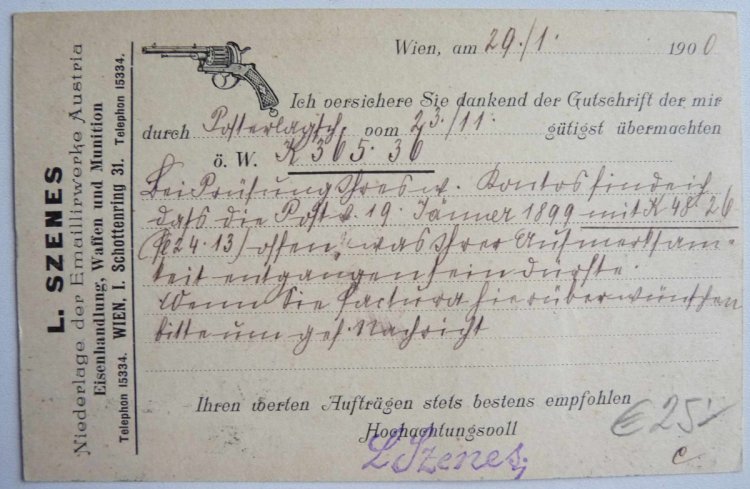 L. SZENES
Niederlage der Emaillirwerke Austria
Eisenhandlung, Waffen und Munition
Telephon 15334. WIEN, I. Schottenring 31. Telephon 15334.
Wien, am 29./1. 1900
Ich versichere Sie dankend der Gutschrift der mir
durch Posterlagsch. vom 23./11. gütigst übermachten
ö. W. K 365.36
Bei Prüfung Ihres w. Kontos finde ich
daſs die Post v. 19. Jänner 1899 mit K 48.26
(fl 24.13) offen, was Ihrer Aufmerksam-
keit entgangen sein dürfte.
Wenn Sie Factura hierüber wünschen
bitte um gef. Nachricht
Ihren werten Aufträgen stets bestens empfohlen
Hochachtungsvoll
L Szenes
€ 25.-
c